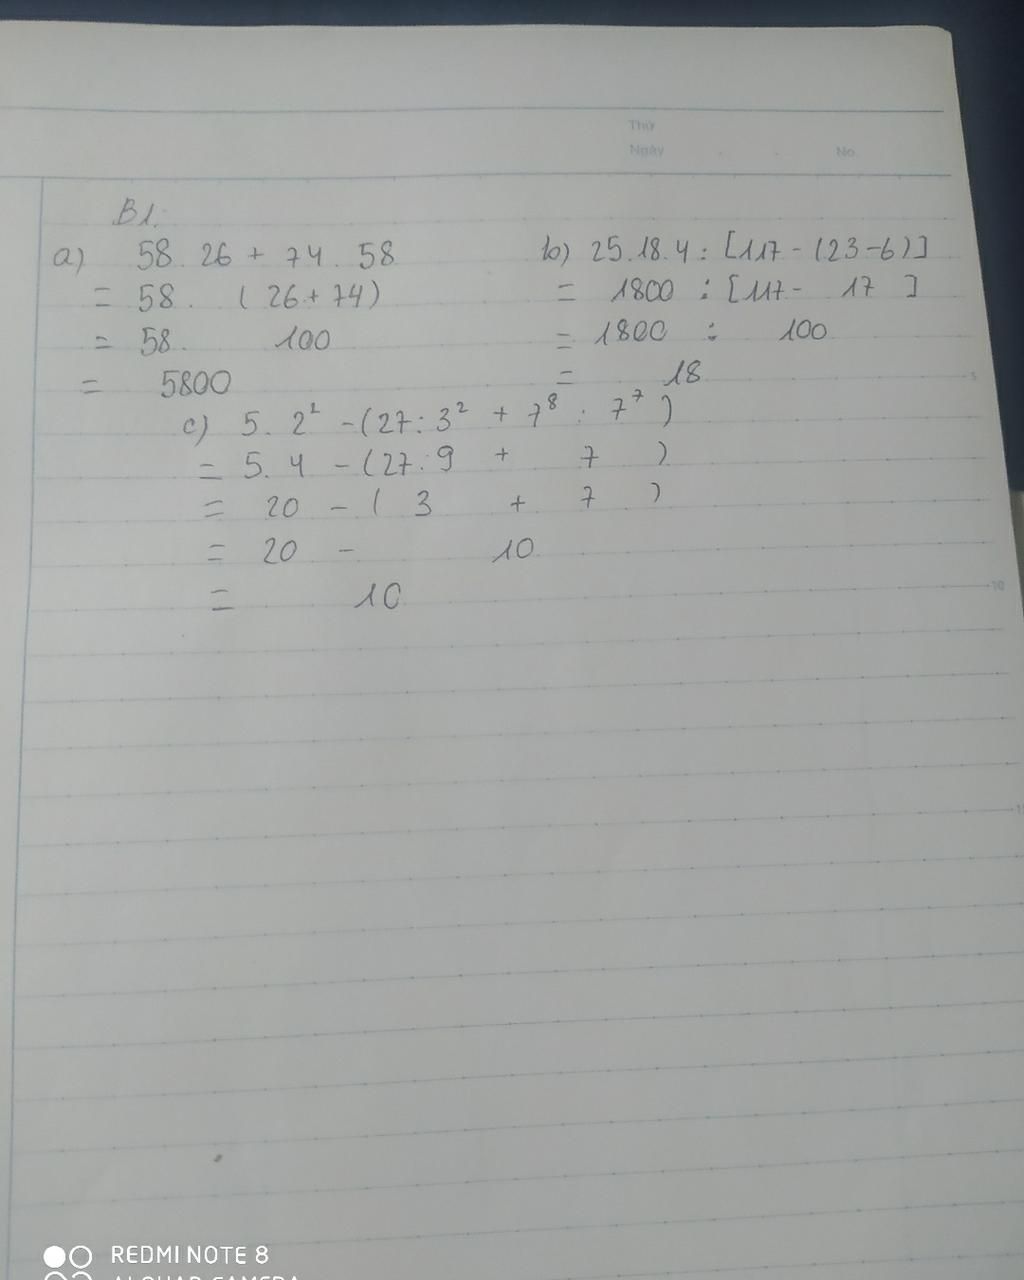 Thứ
Ngày . . No.
B1:
a) 58. 26 + 74. 58
= 58. (26+74)
= 58. 100
= 5800
b) 25.18.4 : [117 - (23-6)]
= 1800 : [117 - 17 ]
= 1800 : 100
= 18
5
c) 5. 2² - (27:3² + 7⁸ : 7⁷)
= 5. 4 - (27:9 + 7 )
= 20 - ( 3 + 7 )
= 20 - 10
= 10
10
REDMI NOTE 8